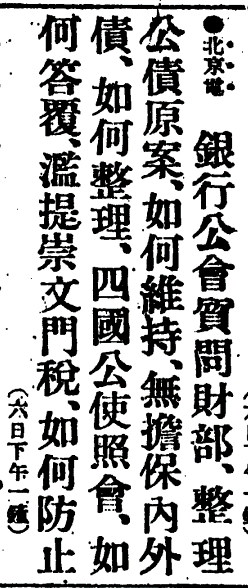 ●北京電
銀行公會質問財部、整理
公債原案、如何維持、無擔保內外
債、如何整理、四國公使照會、如
何答覆、濫提崇文門稅、如何防止
(六日下午一鐘)